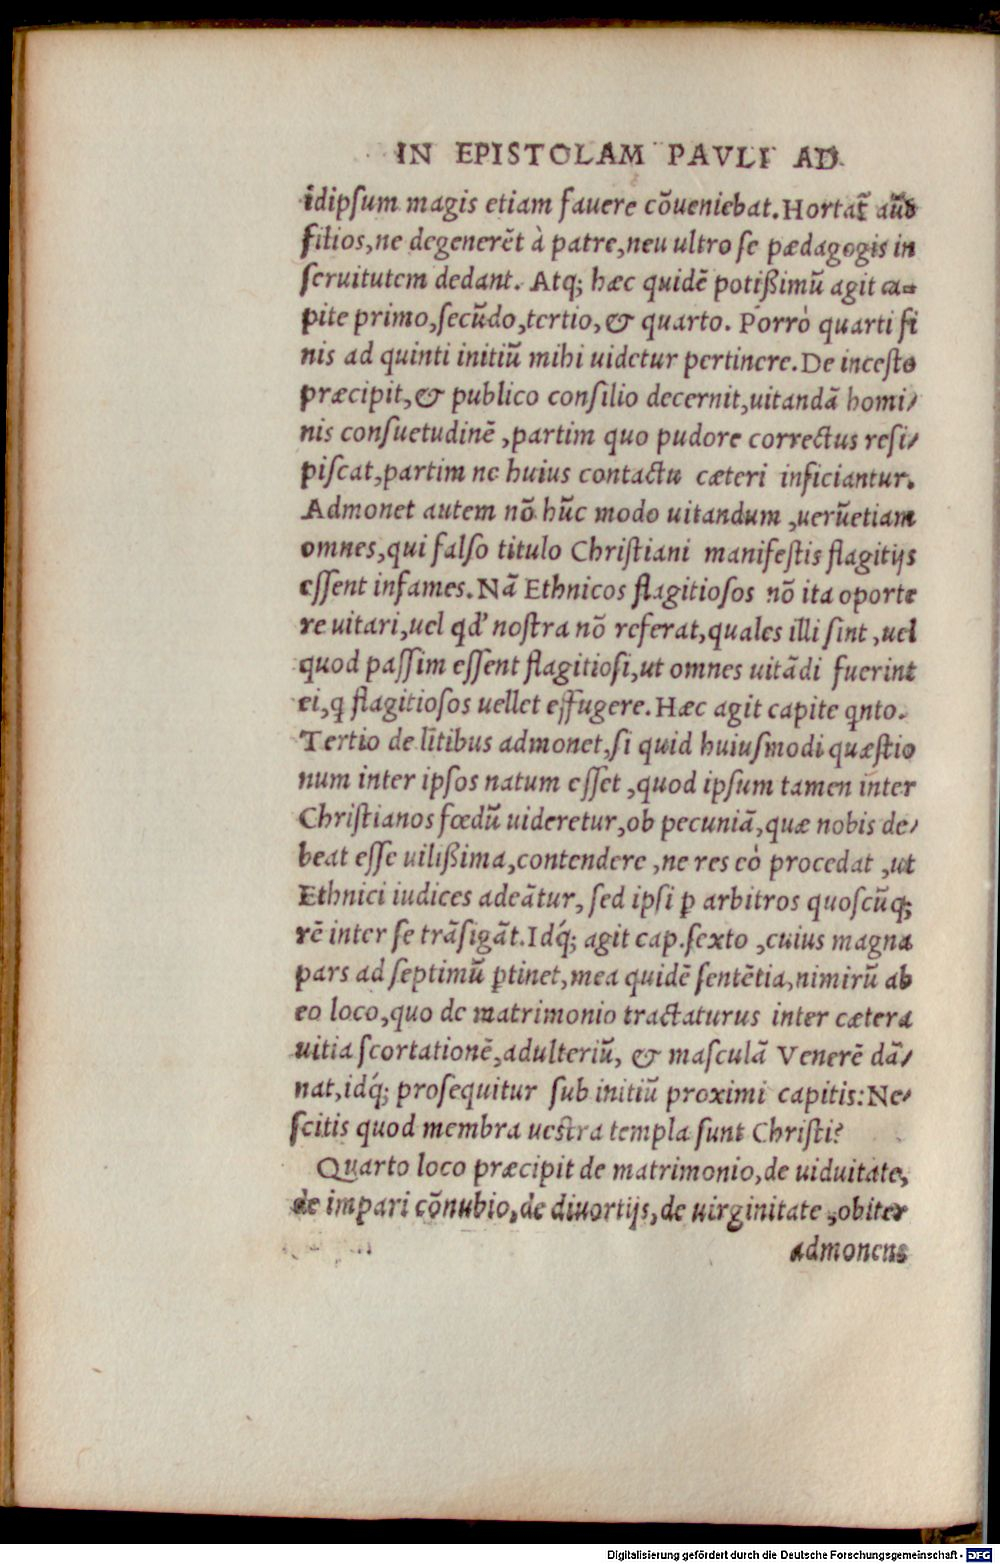 IN EPISTOLAM PAVLI AD
idipſum magis etiam fauere cõueniebat. Hortat̃ aũt
filios, ne degenerẽt à patre, neu ultro ſe pædagogis in
ſeruitutem dedant. Atq; hæc quidẽ potißimũ agit ca-
pite primo, ſecũdo, tertio, & quarto. Porrò quarti fi
nis ad quinti initiũ mihi uidetur pertinere. De inceſto
præcipit, & publico conſilio decernit, uitandã homi/
nis conſuetudinẽ, partim quo pudore correctus reſi/
piſcat, partim ne huius contactu cæteri inficiantur.
Admonet autem nõ hũc modo uitandum, uerũetiam
omnes, qui falſo titulo Chriſtiani manifeſtis flagitijs
eſſent infames. Nã Ethnicos flagitioſos nõ ita oporte
re uitari, uel qd' noſtra nõ referat, quales illi ſint, uel
quod paſſim eſſent flagitioſi, ut omnes uitãdi fuerint
ei, q̃ flagitioſos uellet effugere. Hæc agit capite q̃nto.
Tertio de litibus admonet, ſi quid huiuſmodi quæſtio
num inter ipſos natum eſſet, quod ipſum tamen inter
Chriſtianos fœdũ uideretur, ob pecuniã, quæ nobis de/
beat eſſe uilißima, contendere, ne res eò procedat, ut
Ethnici iudices adeãtur, ſed ipſi ꝑ arbitros quoſcũq;
rẽ inter ſe trãſigãt. Idq́; agit cap. ſexto, cuius magna
pars ad ſeptimũ ꝑtinet, mea quidẽ ſentẽtia, nimirũ ab
eo loco, quo de matrimonio tractaturus inter cætera
uitia ſcortationẽ, adulteriũ, & maſculã Venerẽ dã/
nat, idq́; proſequitur ſub initiũ proximi capitis: Ne/
ſcitis quod membra ueſtra templa ſunt Chriſti?
Quarto loco præcipit de matrimonio, de uiduitate,
de impari cõnubio, de diuortijs, de uirginitate, obiter
admonens
Digitalisierung gefördert durch die Deutsche Forschungsgemeinschaft - DFG